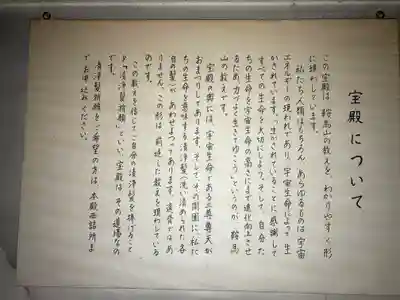 宝殿について
この宝殿は、鞍馬山の教えを、わかりやすく形
に現わしています。
私たち人類はもちろん、あらゆるものは宇宙
エネルギーの現われであり、宇宙生命によって生
かされています。生かされていることに感謝して
すべての生命を大切にしよう。そして、自分た
ちの生命を宇宙生命の高さにまで進化向上させ
るため、力づよく生きてゆこう、というのが鞍馬
山の教えです。
宝殿奥には、宇宙生命である三尊尊天が
おまつりしてあります。そして、その周囲に、私た
ちの生命を意味する清浄髪(洗い清めた各
自の髪)が、あわせまつってあります。遺骨ではあ
りません。この形は、前述した教えを現わしている
のです。
この教えを信じてご自分の清浄髪を捧げること
を「清浄髪祈願」といい、宝殿は、その道場なの
です。
清浄髪祈願をご希望の方は、本殿西詰所ま
でお申込みください。